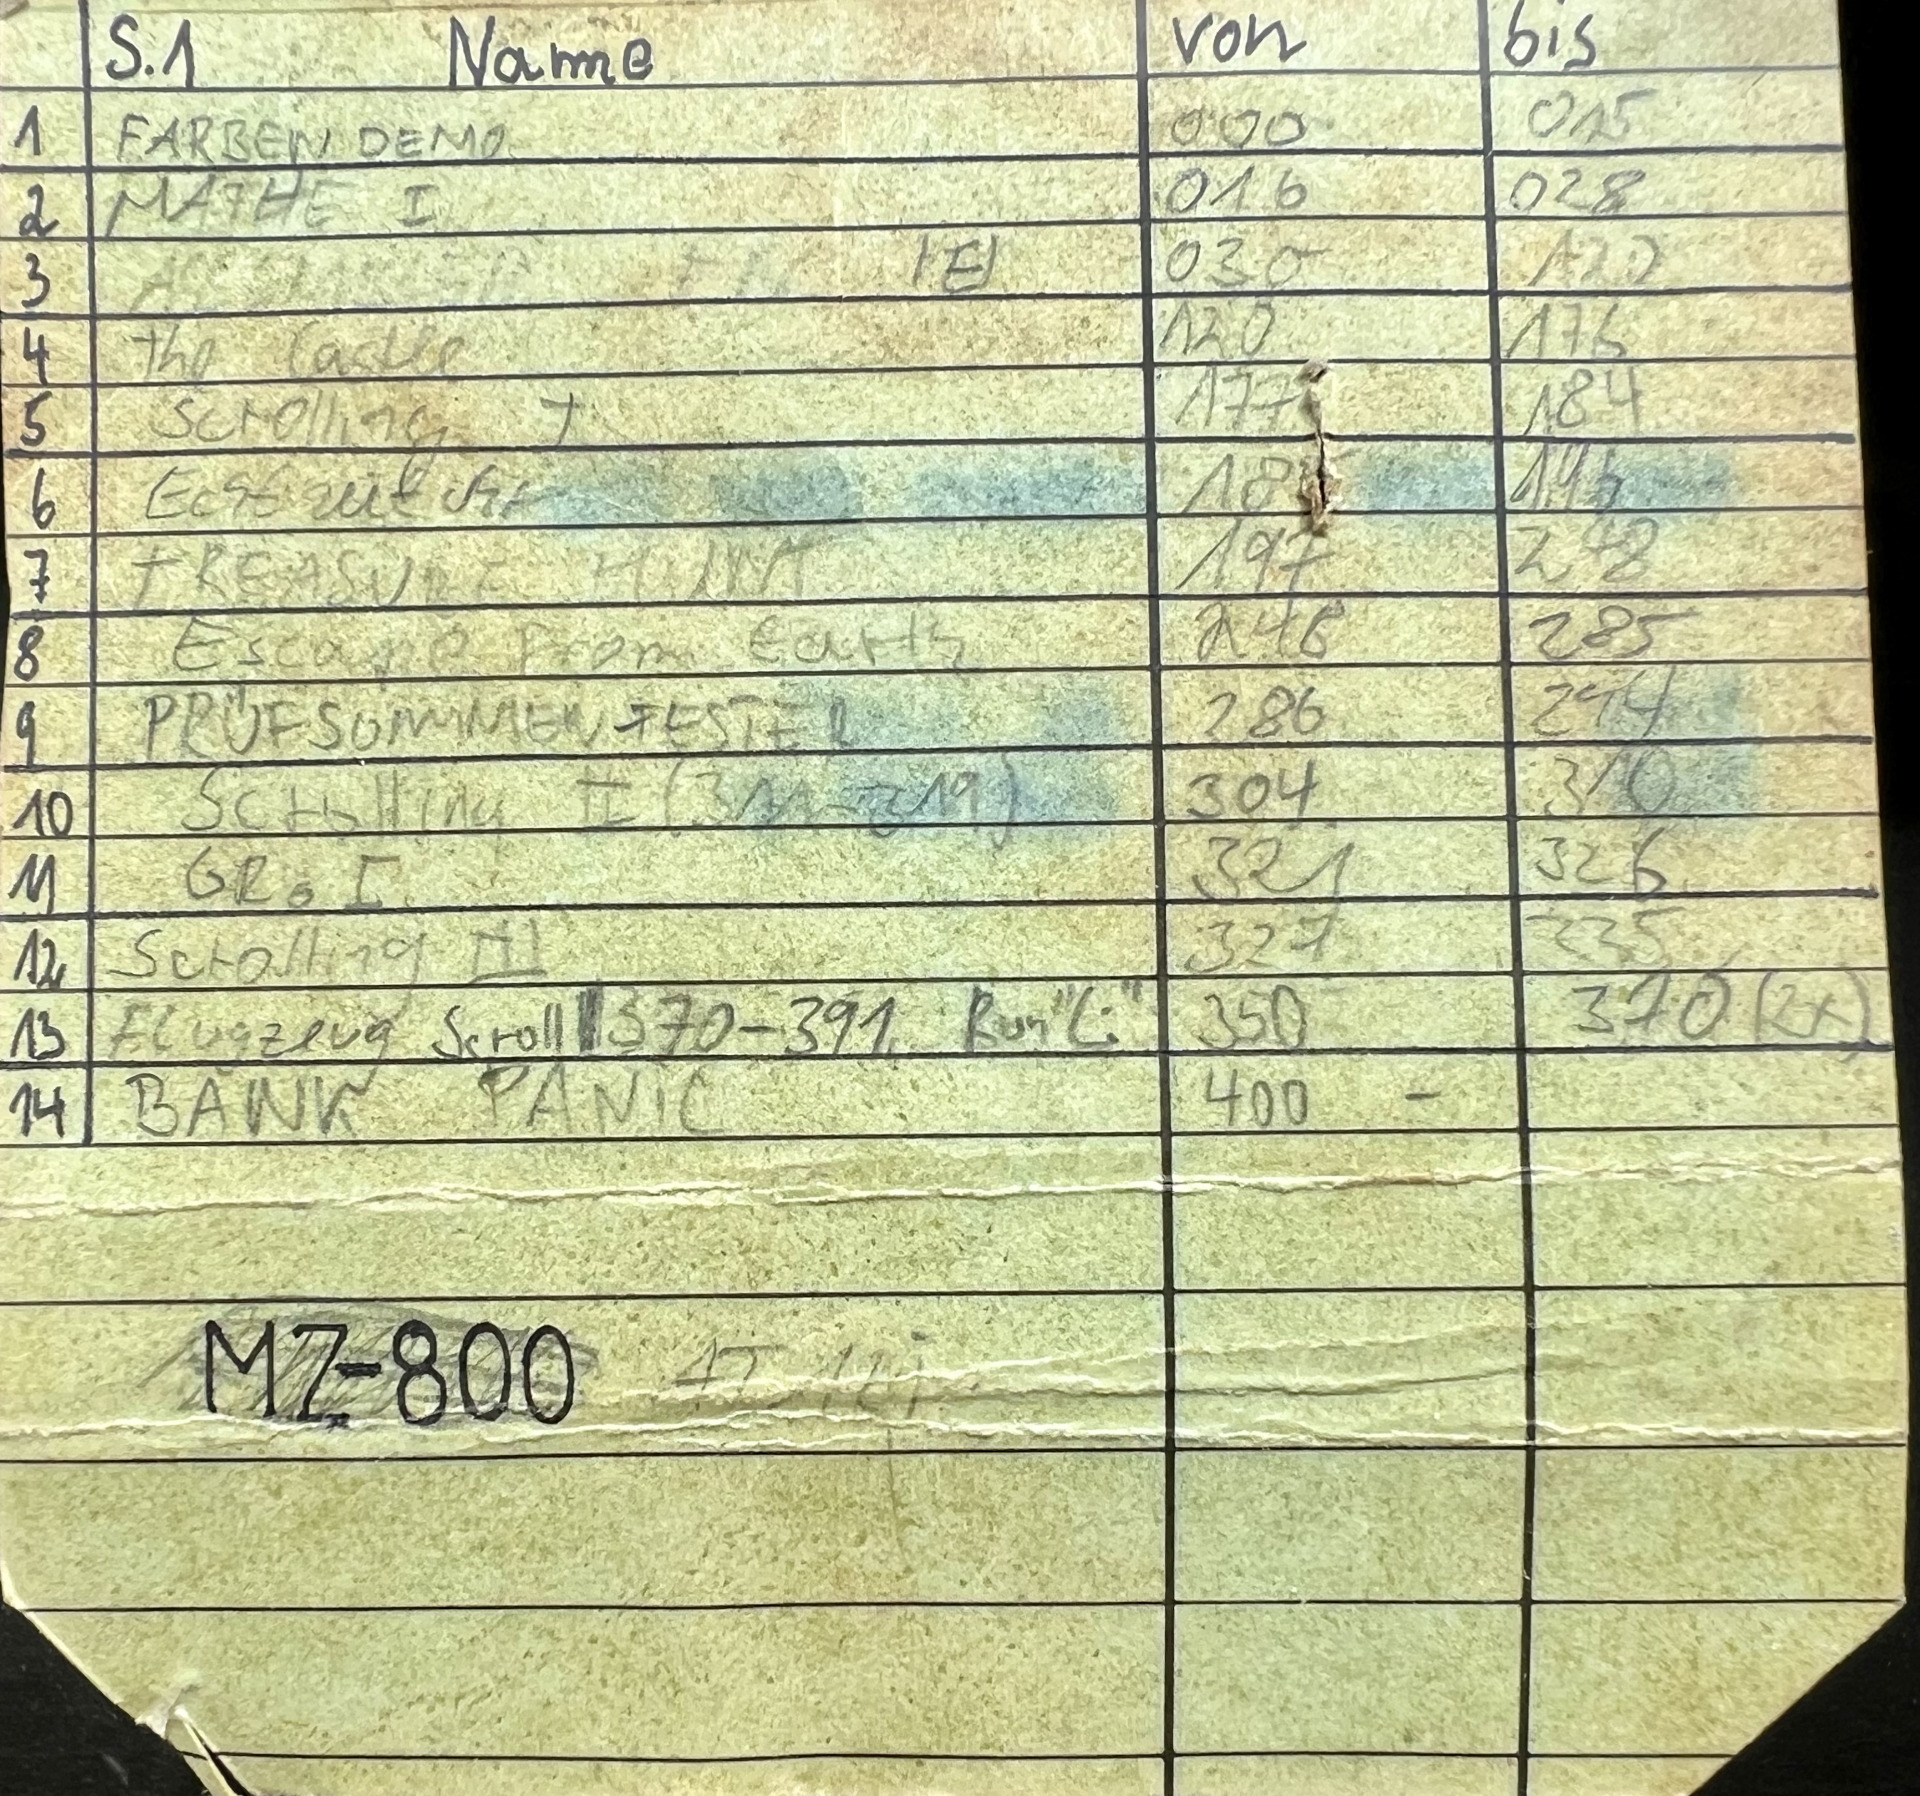 S.1 Name von bis
1 FARBEN DEMO 000 015
2 MATHE I 016 028
3 030 120
4 the Castle 120 176
5 Scrolling I 177 184
6 18 196
7 TREASURE HUNT 197 248
8 Escape from Earth 248 285
9 PRÜFSUMMENTESTER 286 294
10 Scrolling II (311-319) 304 310
11 GR. I 321 326
12 Scrolling III 327 335
13 Flugzeug Scroll 370-391 Run"C:" 350 370 (2x)
14 BANK PANIC 400 -
MZ-800